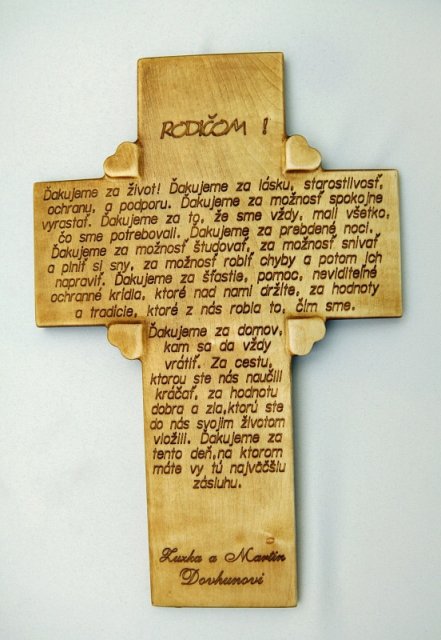 RODIČOM !
Ďakujeme za život! Ďakujeme za lásku, starostlivosť,
ochranu, a podporu. Ďakujeme za možnosť spokojne
vyrastať. Ďakujeme za to, že sme vždy, mali všetko,
čo sme potrebovali. Ďakujeme za prebdené noci.
Ďakujeme za možnosť študovať, za možnosť snívať
a plniť si sny, za možnosť robiť chyby a potom ich
napraviť. Ďakujeme za šťastie, pomoc, neviditeľné
ochranné krídla, ktoré nad nami držíte, za hodnoty
a tradície, ktoré z nás robia to, čím sme.
Ďakujeme za domov,
kam sa dá vždy
vrátiť. Za cestu,
ktorou ste nás naučili
kráčať, za hodnotu
dobra a zla,ktorú ste
do nás svojim životom
vložili. Ďakujeme za
tento deň,na ktorom
máte vy tú najväčšiu
zásluhu.
Zuzka a Martin
Dovhunovi